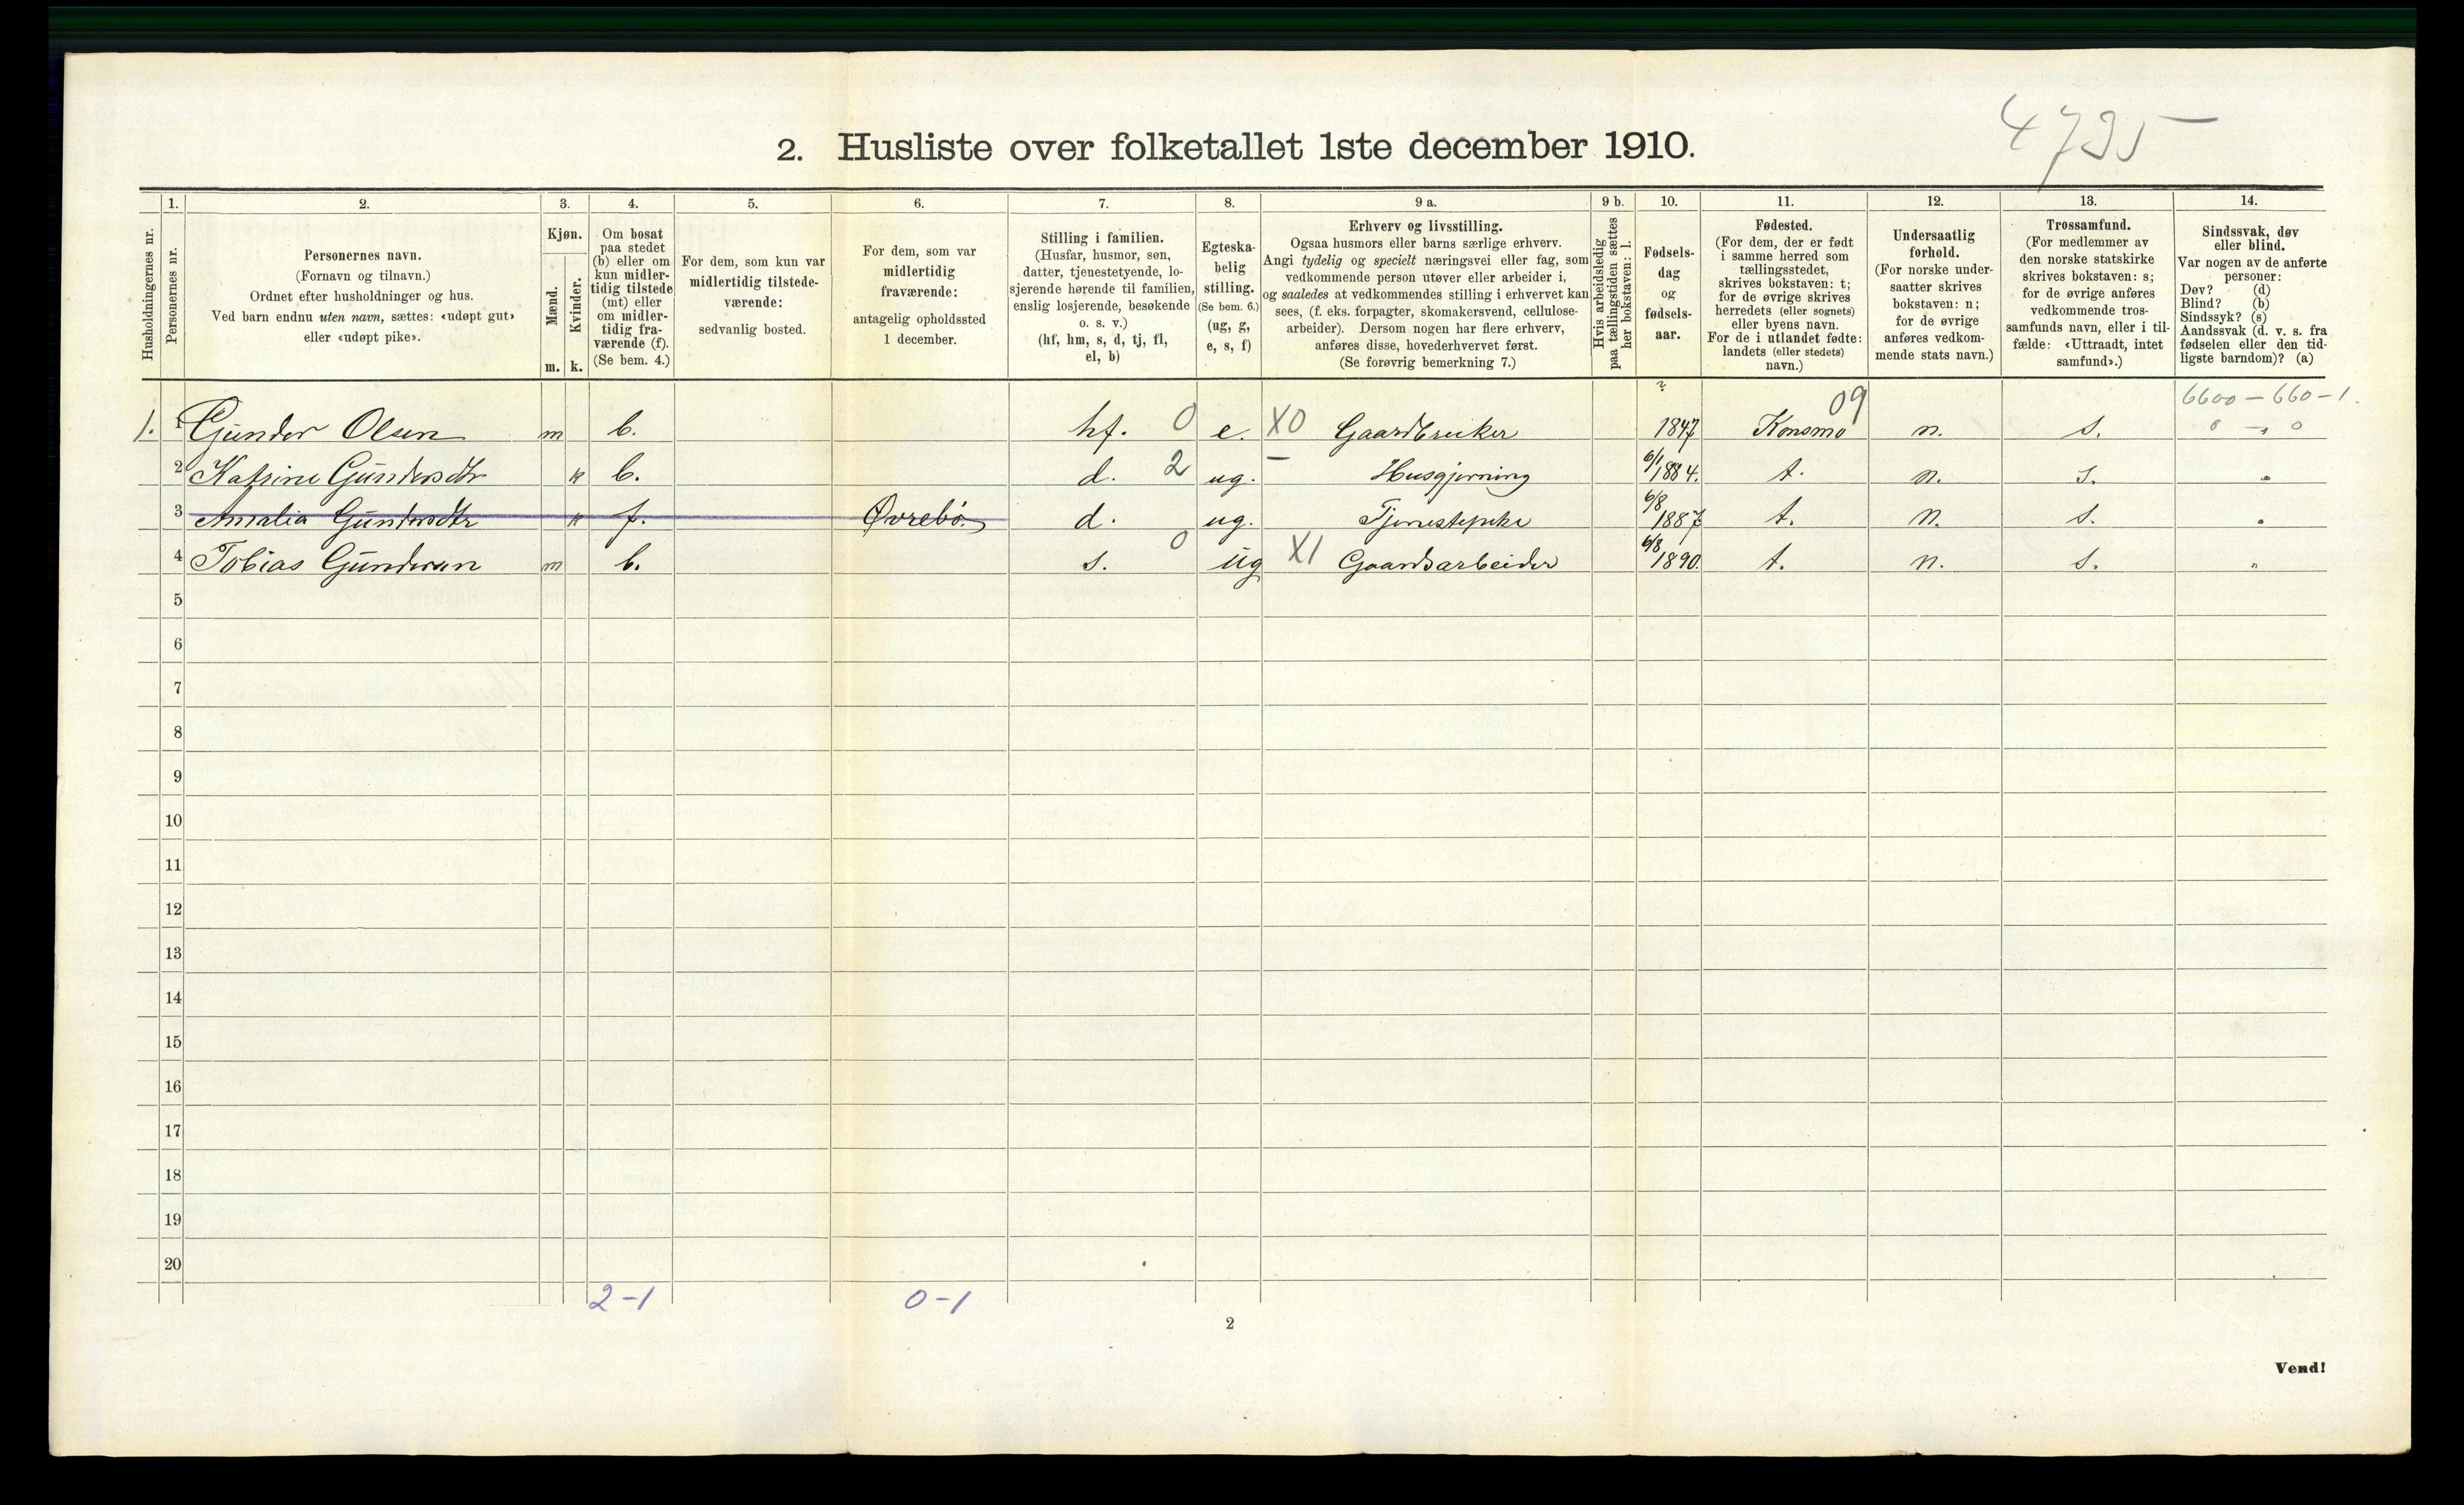 4735
2. Husliste over folketallet 1ste december 1910.
Husholdningernes nr.
1.
Personernes nr.
2.
Personernes navn.
(Fornavn og tilnavn.)
Ordnet efter husholdninger og hus.
Ved barn endnu uten navn, sættes: «udøpt gut»
eller «udøpt pike».
3.
Kjøn.
Mænd.
Kvinder.
m. k.
4.
Om bosat
paa stedet
(b) eller om
kun midler-
tidig tilstede
(mt) eller
om midler-
tidig fra-
værende (f).
(Se bem. 4.)
5.
For dem, som kun var
midlertidig tilstede-
værende:
sedvanlig bosted.
6.
For dem, som var
midlertidig
fraværende:
antagelig opholdssted
1 december.
7.
Stilling i familien.
(Husfar, husmor, søn,
datter, tjenestetyende, lo-
sjerende hørende til familien,
enslig losjerende, besøkende
o. s. v.)
(hf, hm, s, d, tj, fl,
el, b)
8.
Egteska-
belig
stilling.
(Se bem. 6.)
(ug, g,
e, s, f)
9 a.
Erhverv og livsstilling.
Ogsaa husmors eller barns særlige erhverv.
Angi tydelig og specielt næringsvei eller fag, som
vedkommende person utøver eller arbeider i,
og saaledes at vedkommendes stilling i erhvervet kan
sees, (f. eks. forpagter, skomakersvend, cellulose-
arbeider). Dersom nogen har flere erhverv,
anføres disse, hovederhvervet først.
(Se forøvrig bemerkning 7.)
9 b.
Hvis arbeidsledig
paa tællingstiden sættes
her bokstaven: l.
10.
Fødsels-
dag
og
fødsels-
aar.
11.
Fødested.
(For dem, der er født
i samme herred som
tællingsstedet,
skrives bokstaven: t;
for de øvrige skrives
herredets (eller sognets)
eller byens navn.
For de i utlandet fødte:
landets (eller stedets)
navn.)
12.
Undersaatlig
forhold.
(For norske under-
saatter skrives
bokstaven: n;
for de øvrige
anføres vedkom-
mende stats navn.)
13.
Trossamfund.
(For medlemmer av
den norske statskirke
skrives bokstaven: s;
for de øvrige anføres
vedkommende tros-
samfunds navn, eller i til-
fælde: «Uttraadt, intet
samfund».)
14.
Sindssvak, døv
eller blind.
Var nogen av de anførte
personer:
Døv? (d)
Blind? (b)
Sindssyk? (s)
Aandssvak (d. v. s. fra
fødselen eller den tid-
ligste barndom)? (a)
6600 – 660 – 1.
1. 1 Gunder Olsen m b. hf. 0 e. X0 Gaardbruker ? 1847 Konsmo 09 n. s. 0 – 0
2 Katrine Gundersdtr k b. d. 2 ug. – Husgjerning 6/1 1884. t. n. s. "
3 Amalia Gundersdtr k f. Øvrebø. d. ug. Tjenestepike 6/8 1887 t. n. s. "
4 Tobias Gundersen m b. s. 0 ug X1 Gaardsarbeider 6/8 1890. t. n. s. "
5
6
7
8
9
10
11
12
13
14
15
16
17
18
19
20
2–1 0–1
2
Vend!